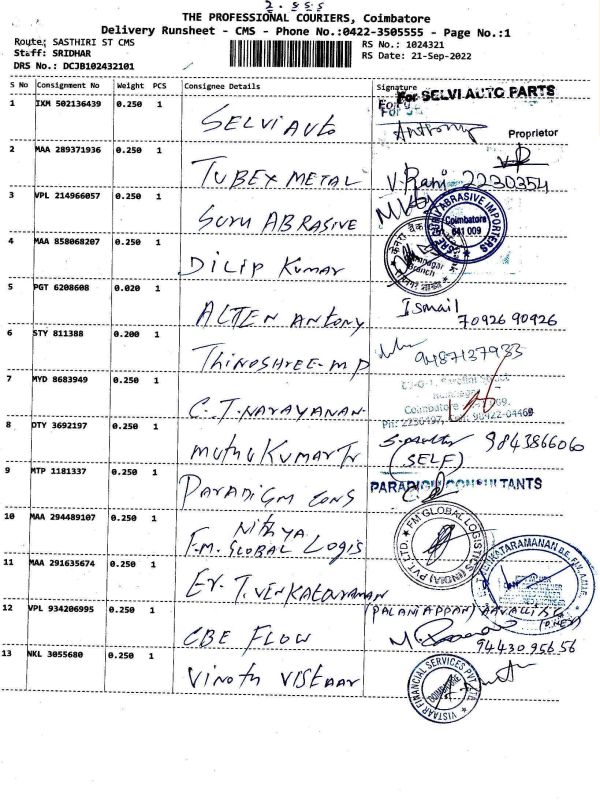 THE PROFESSIONAL COURIERS, Coimbatore
Delivery Runsheet - CMS - Phone No.:0422-3505555 - Page No.:1
Route: SASTHIRI ST CMS
Staff: SRIDHAR
DRS No.: DCJB102432101
RS No.: 1024321
RS Date: 21-Sep-2022
S No Consignment No Weight PCS Consignee Details Signature
For SELVI AUTO PARTS
1 IXM 502136439 0.250 1 SELVI AUTO Anthony
Proprietor
2 MAA 289371936 0.250 1 TUBEX METAL V.Rani 2230354
3 VPL 214966057 0.250 1 SURU ABRASIVE
ABRASIVE IMPORTERS Coimbatore 641 009
4 MAA 858068207 0.250 1 DILIP KUMAR
Branch
5 PGT 6208608 0.020 1 ALTEN ANTONY Ismail
70926 90926
6 STY 811388 0.200 1 THINOSHREE-MP 9487137933
7 MYD 8683949 0.250 1 C.T.NARAYANAN
Coimbatore
Ph: 2230497, 98422-04469
8 DTY 3692197 0.250 1 MUTHUKUMAR TR 9843866060
(SELF)
9 MTP 1181337 0.250 1 PARADIGM CONS
PARADIGM CONSULTANTS
10 MAA 294489107 0.250 1 NITHYA
F.M. GLOBAL LOGIS
FM GLOBAL LOGISTICS (INDIA) PVT. LTD.
11 MAA 291635674 0.250 1 Er. T. VENKATARAMAN
VENKATARAMANAN B.E.
12 VPL 934206995 0.250 1 CBE FLOW
(PALANIAPPAN)
94430 95656
13 NKL 3055680 0.250 1 VINOTH VISTAAR
VISTAAR FINANCIAL SERVICES PVT. LTD. COIMBATORE